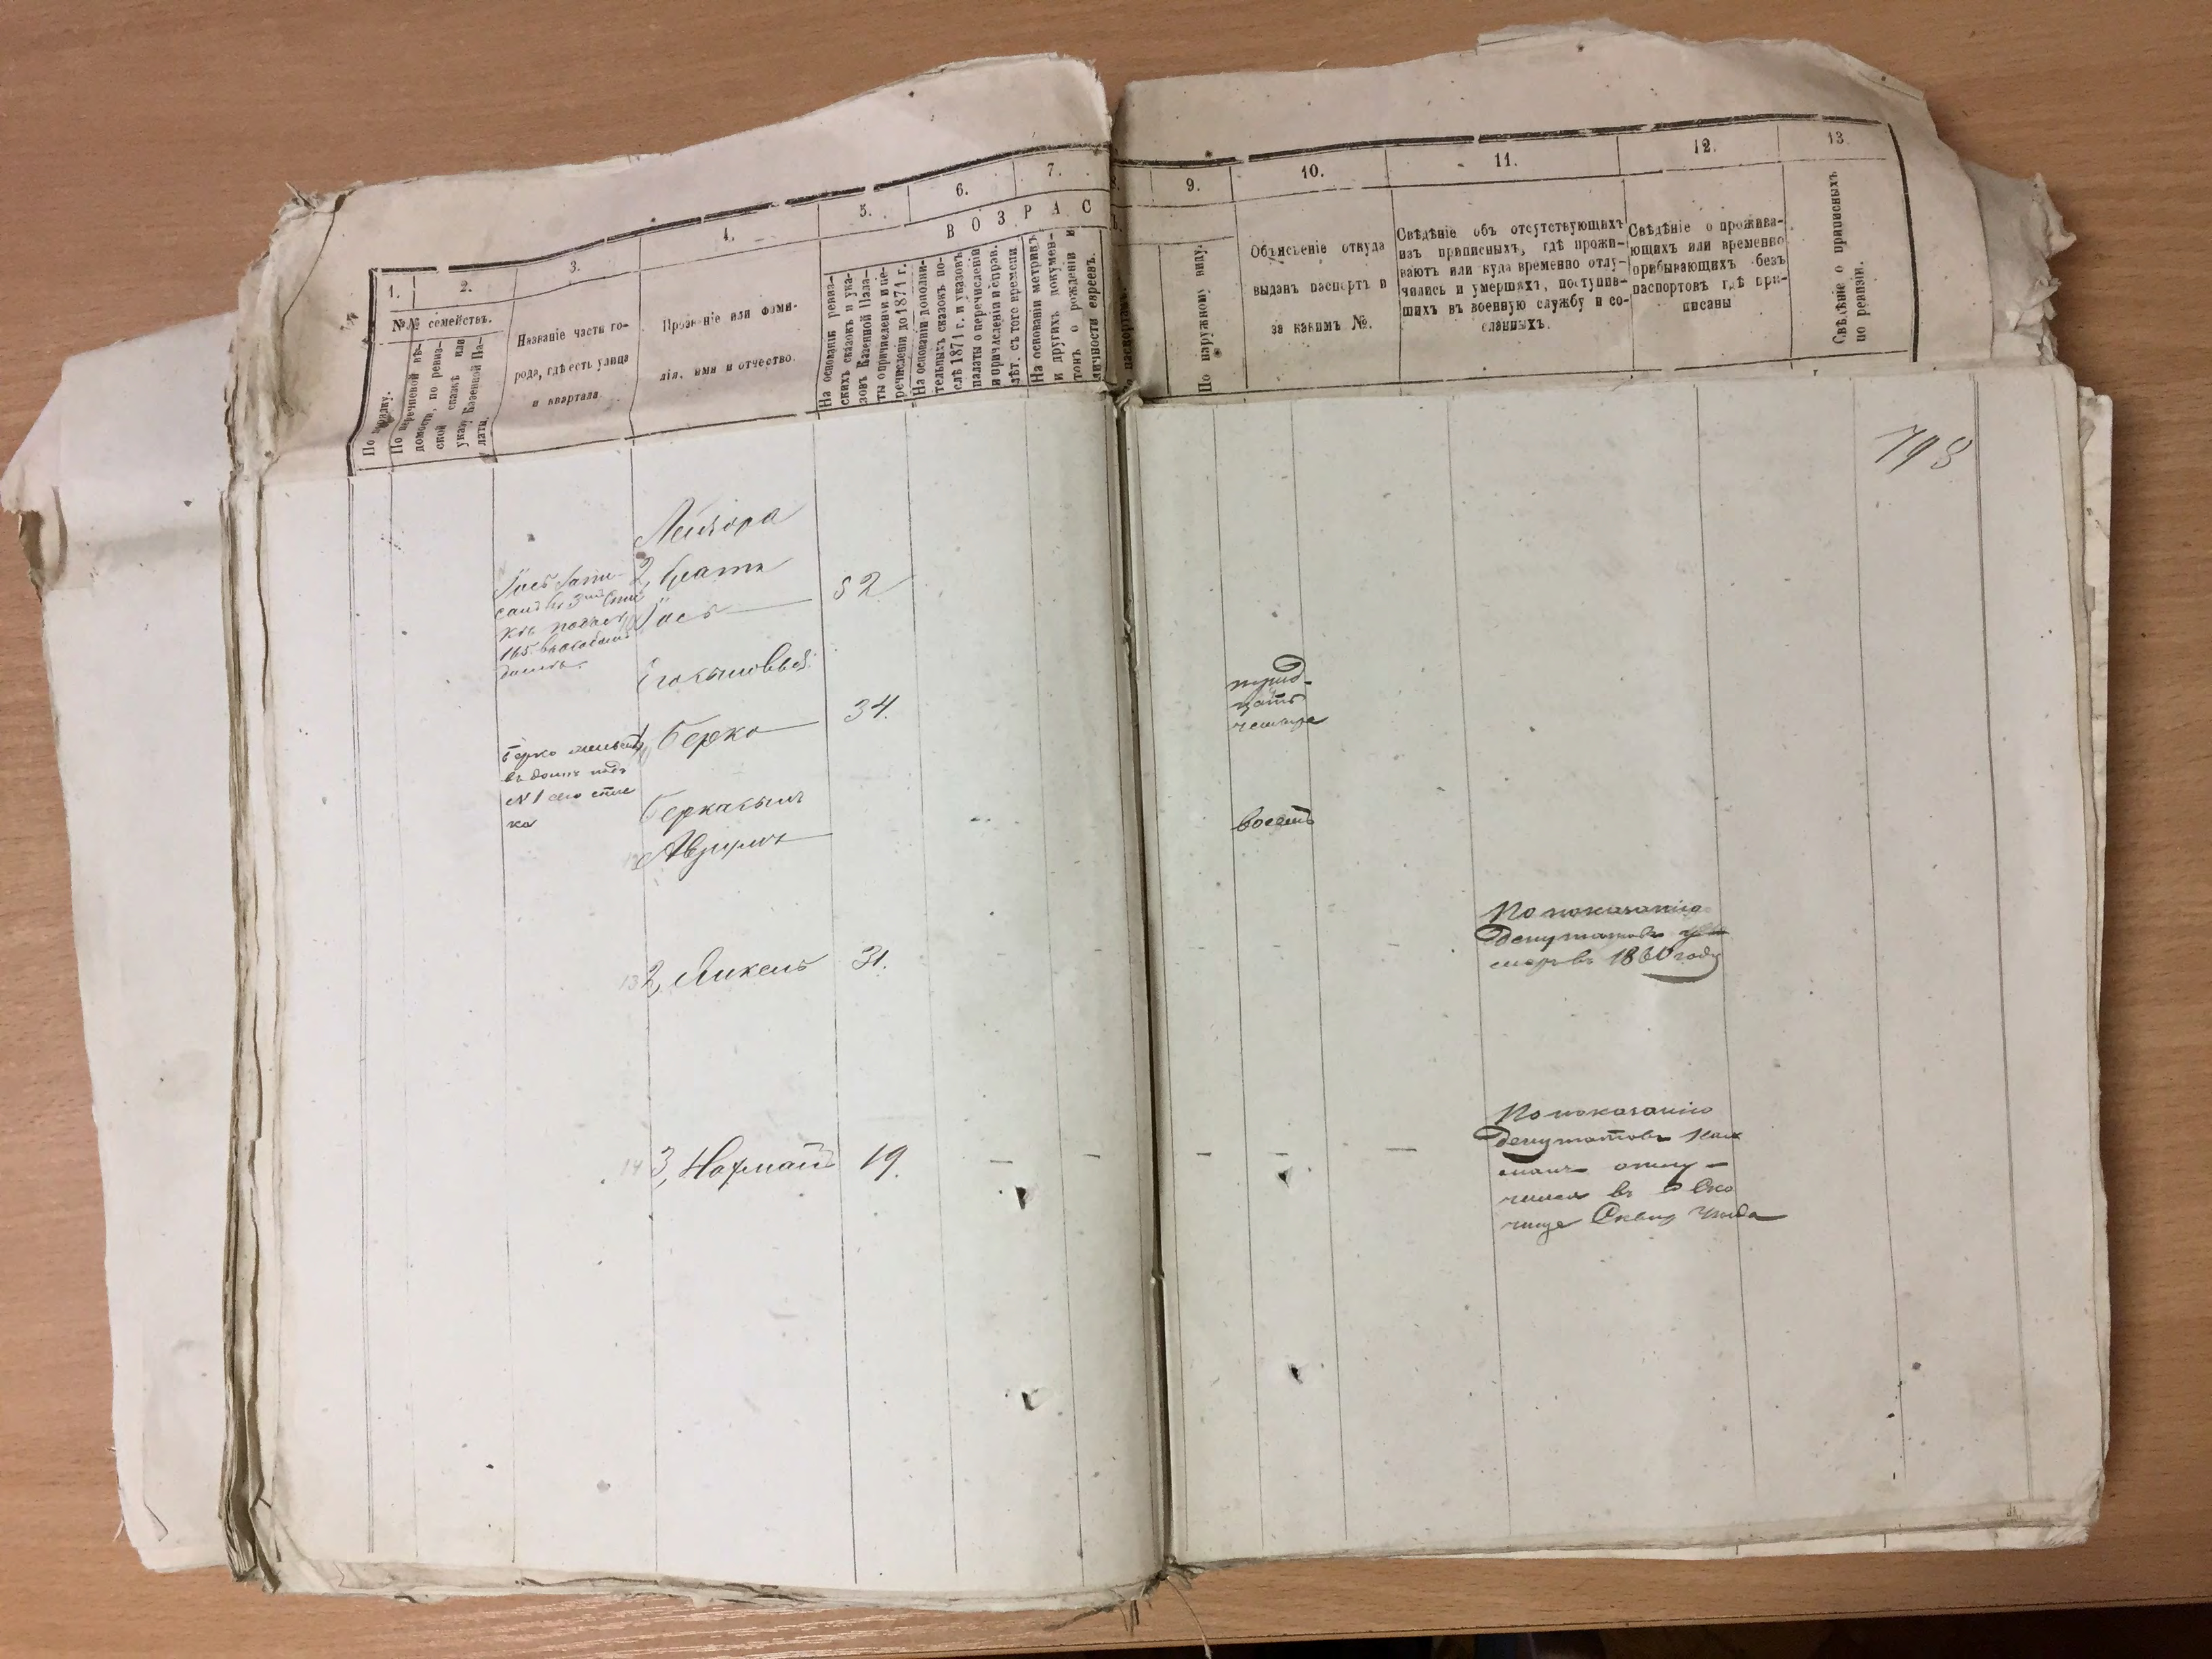 1.
2.
3.
4.
5.
6.
7.
ВОЗРАС
№№ семействъ.
По порядку.
По перечневой вѣ-
домости, по ревиз-
ской сказкѣ или
указу Казенной Па-
латы.
Названіе части го-
рода, гдѣ есть улица
и квартала.
Прозваніе или фами-
лія, имя и отчество.
На основаніи ревиз-
скихъ сказокъ и ука-
зовъ Казенной Пала-
ты о причисленіи и пе-
речисленіи до 1871 г.
На основаніи дополни-
тельныхъ сказокъ по-
слѣ 1871 г. и указовъ
палаты о перечисленіи
и причисленіи и справ.
лѣт. съ того времени.
На основаніи метрикъ
и другихъ докумен-
товъ о рожденіи и
личности евреевъ.
9.
10.
11.
12.
13.
По паспортамъ.
По наружному виду.
Объясненіе откуда
выданъ паспортъ и
за какимъ №.
Свѣдѣніе объ отсутствующихъ
изъ приписныхъ, гдѣ прожи-
ваютъ или куда временно отлу-
чились и умершихъ, поступив-
шихъ въ военную службу и со-
сланныхъ.
Свѣдѣніе о прожива-
ющихъ или временно
прибывающихъ безъ
паспортовъ гдѣ при-
писаны
Свѣденіе о приписныхъ
по ревизіи.
798
Лейзора
2, братъ
Іосъ 52
Іосъ запи-
санъ въ 3мъ спис
кѣ подъ №
165 въ особомъ
домѣ.
Берко 34.
Берко живетъ
въ домѣ подъ
№ 1 сего спис
ка
трид-
цать
четыре
Аврумъ
восемь
13 2, Янкель 31.
По показанію
депутатовъ у
меръ въ 1860 году
14 3, Нахманъ 19.
По показанію
депутатовъ Нах
манъ отлу-
чился въ